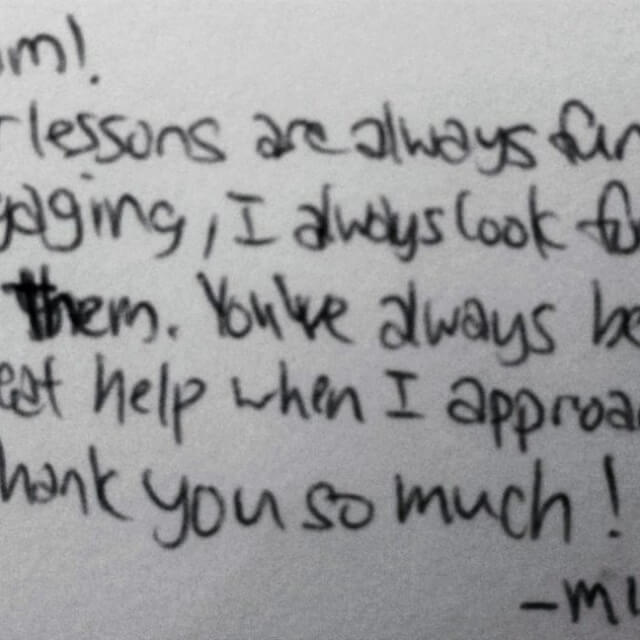 m!
lessons are always fun
gaging, I always look fo
them. You've always be
eat help when I approa
hank you so much!
-mu